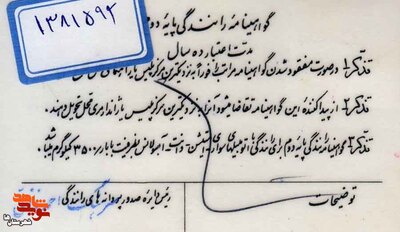 ۱۳۸۱۵۹۲
گواهینامه رانندگی پایه دوم
مدت اعتبار ده سال
تذکر۱ـ در صورت مفقود شدن گواهینامه مراتب را فوراً به نزدیکترین مرکز پلیس یا راهنمایی
تذکر۲ـ از پیدا کننده این گواهینامه تقاضا میشود آنرا به نزدیکترین مرکز پلیس یا ژاندارمری محل تحویل دهند.
تذکر۳ـ گواهینامه رانندگی پایه دوم برای رانندگی با اتومبیلهای سواری، استیشن، وانت، آمبولانس بظرفیت با بار ۳۵۰۰ کیلوگرم میباشد
توضیحات
رئیس دایره صدور پروانه های رانندگی
نوید شاهد
شهرستان‌ها